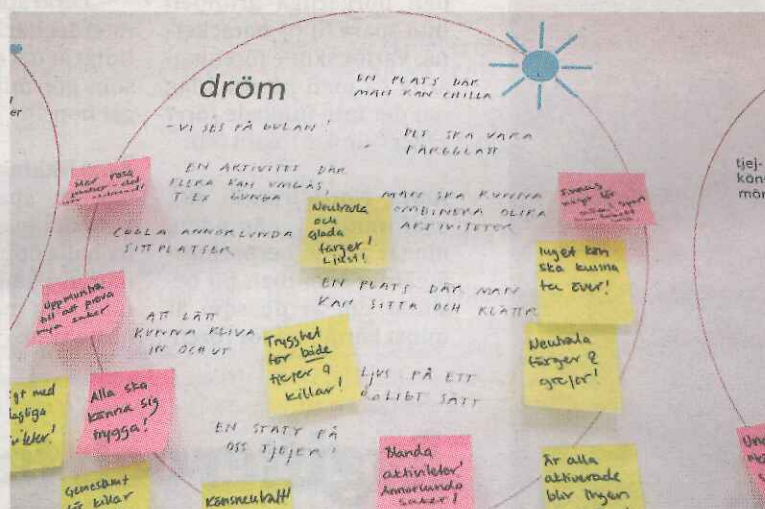 dröm
EN PLATS DÄR
MAN KAN CHILLA
- VI SES PÅ BULAN!
DET SKA VARA
FÄRGGLATT
EN AKTIVITET DÄR
FLERA KAN UMGÅS,
T.EX GUNGA
MAN SKA KUNNA
KOMBINERA OLIKA
AKTIVITETER
COOLA ANNORLUNDA
SITTPLATSER
EN PLATS DÄR MAN
KAN SITTA OCH KLÄTTR
ATT LÄTT
KUNNA KLIVA
IN OCH UT
LJUS PÅ ETT
ROLIGT SÄTT
EN STATY PÅ
OSS TJEJER!
Mer rosa
Neutrala
och
glada
färger!
Ljust!
Finnas
något för
Inget kön
ska kunna
ta över!
Uppmuntra
till att prova
nya saker
Trygghet
för både
tjejer &
killar!
Neutrala
färger &
grejer!
Alla ska
känna sig
trygga!
gt med
Gemensamt
för killar
Könsneutralt!
Blanda
aktiviteter!
Annorlunda
saker!
Är alla
aktiverade
blir ingen
tjej-
kön
mör